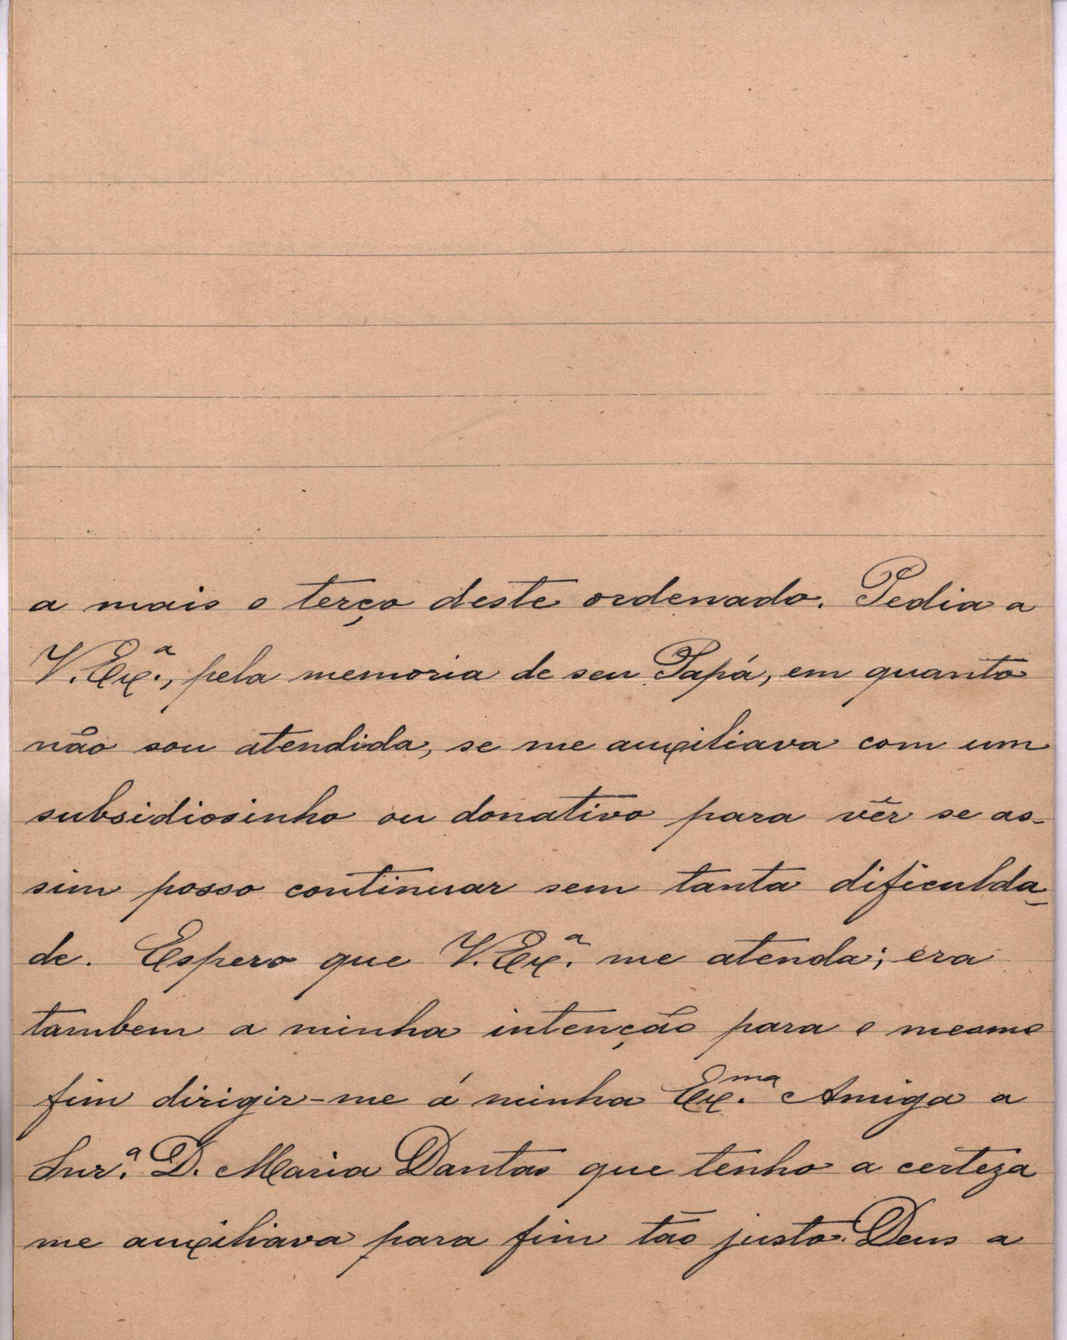 a mais o terço deste ordenado. Pedia a
V. Exª., pela memoria de seu Papá, em quanto
não sou atendida, se me auxiliava com um
subsidiosinho ou donativo para vêr se as-
sim posso continuar sem tanta dificulda-
de. Espero que V. Exª. me atenda; era
tambem a minha intenção para o mesmo
fim dirigir-me á minha Exma. Amiga a
Snrª. D. Maria Dantas que tenho a certeza
me auxiliava para fim tão justo. Deus a